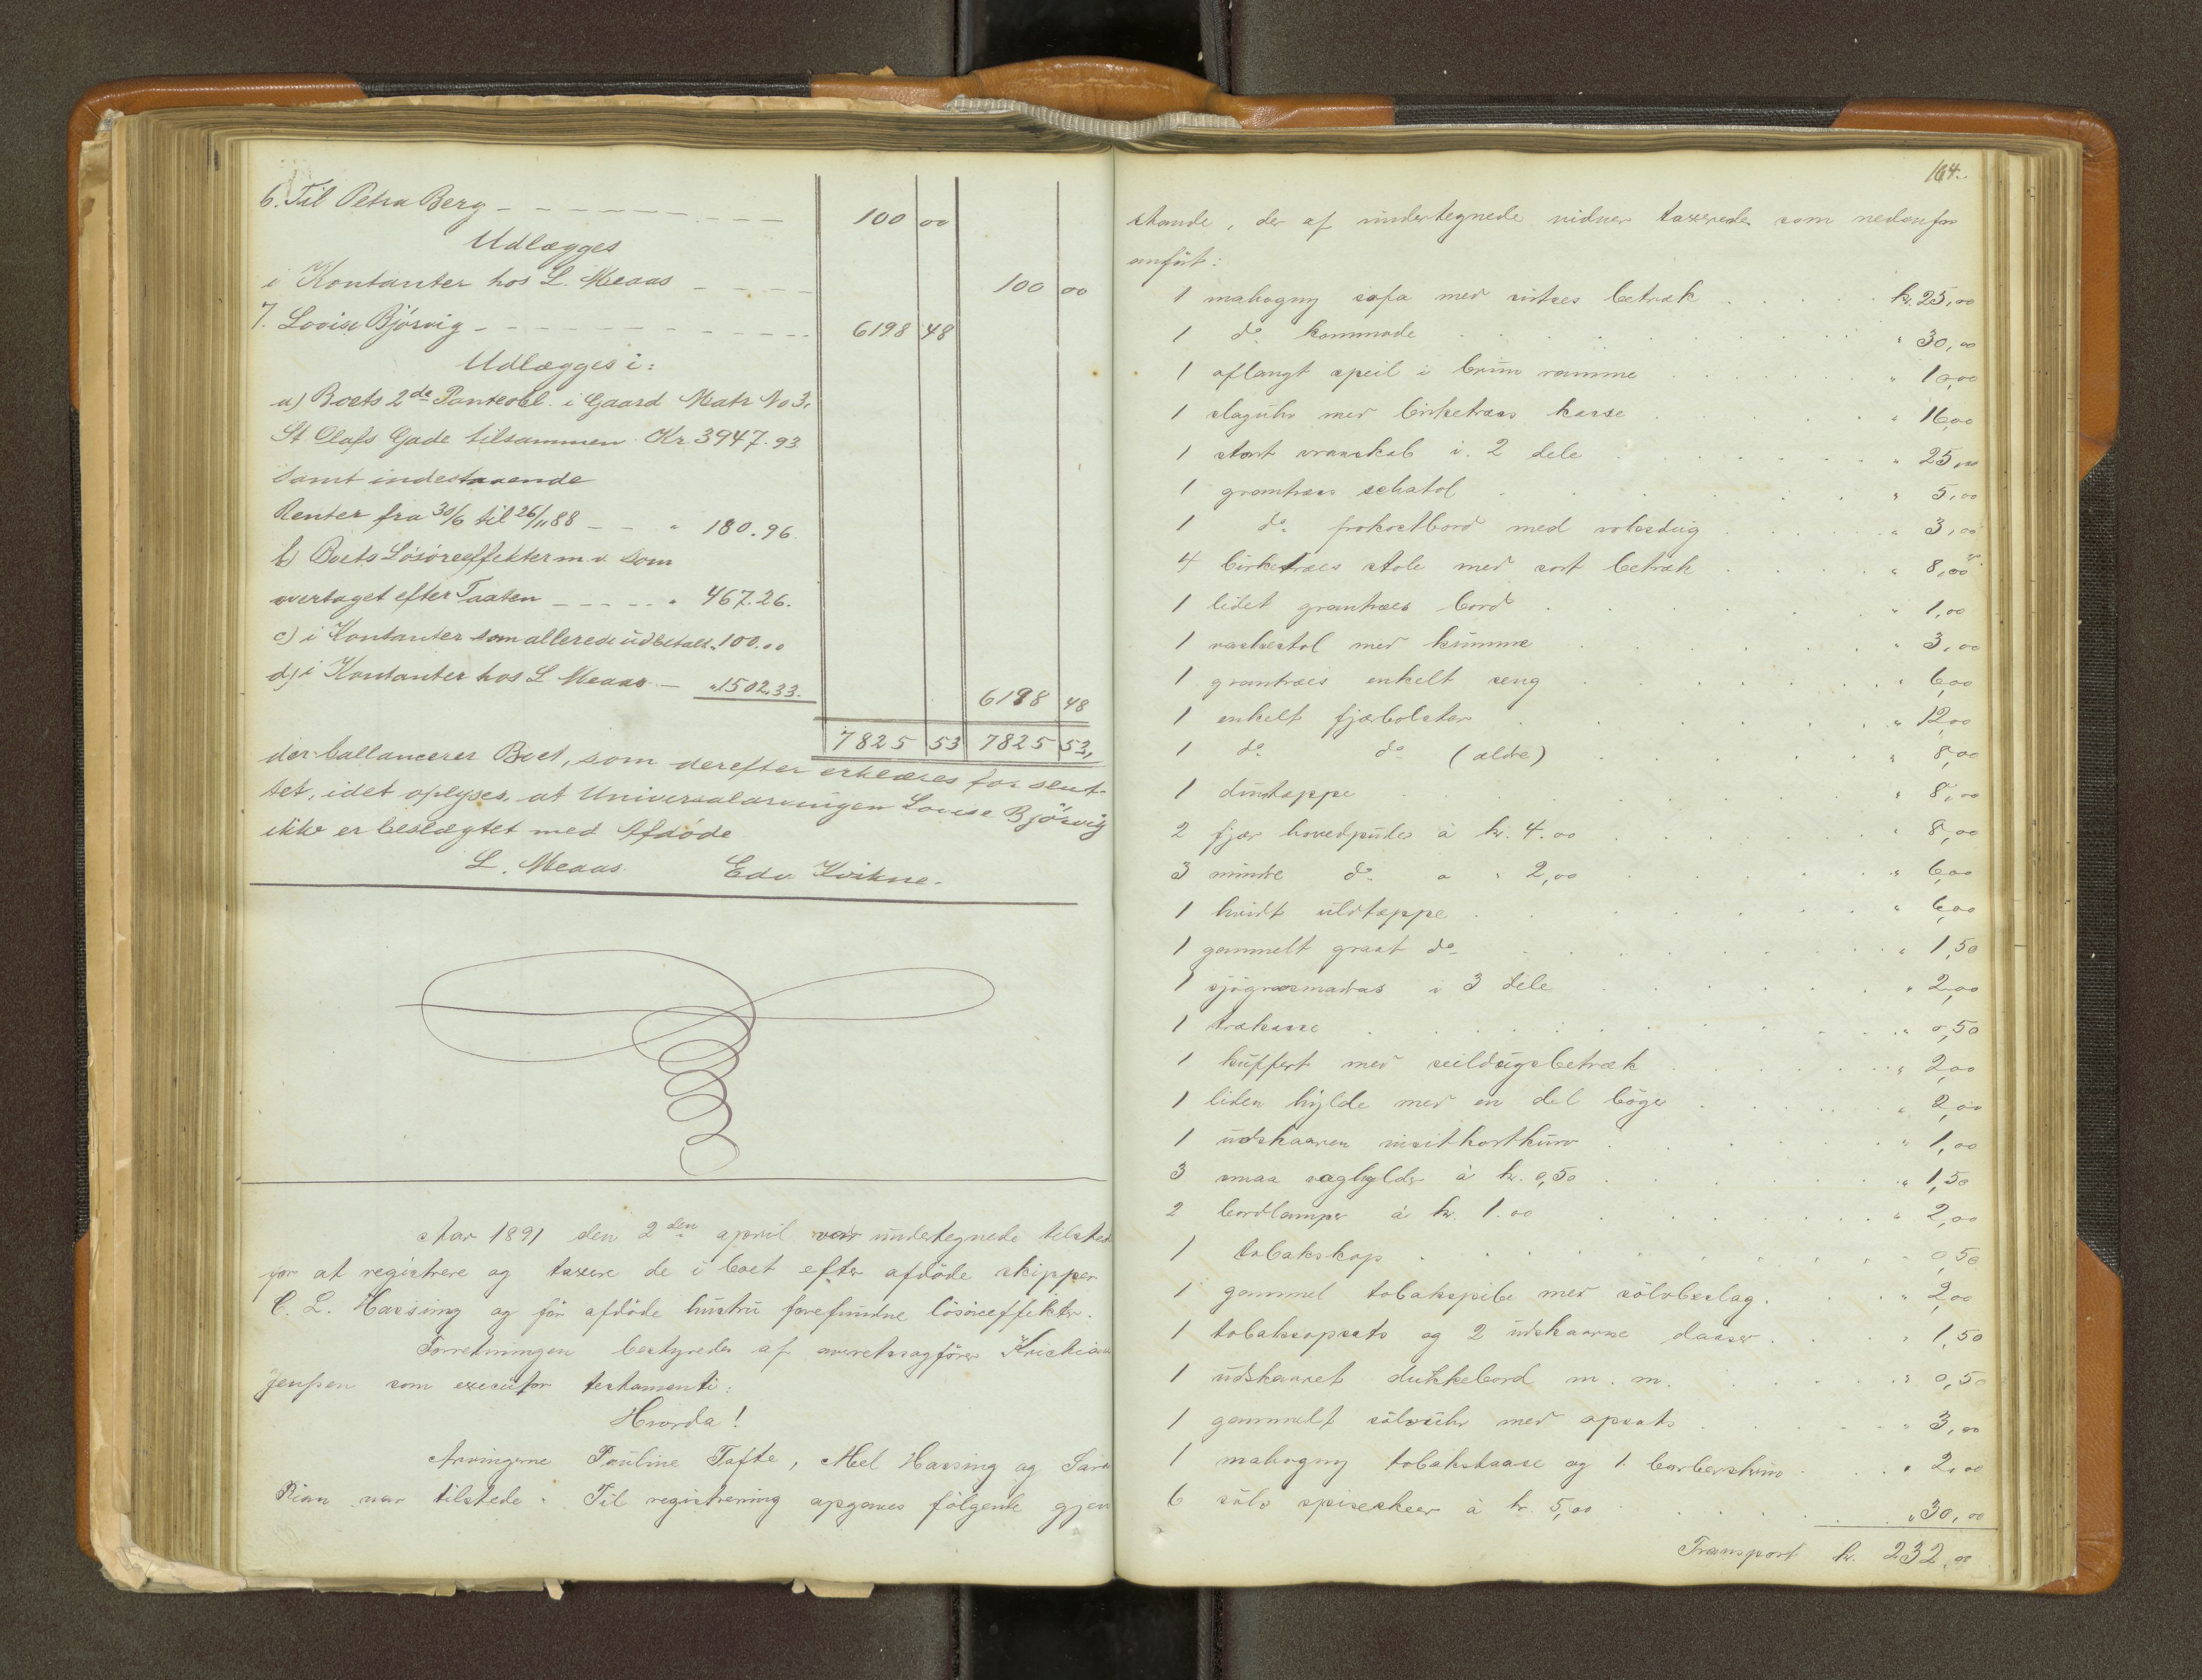 6. Til Petra Berg - - - - - - - - - 100 00
Udlægges
i Kontanter hos L. Meaas - - - - 100 00
7. Lovise Bjørvig - - - - - - - - - 6198 48
Udlægges i:
a) Boets 2de Panteobl. i Gaard Matr No 3,
St Olafs Gade tilsammen Kr. 3947.93
samt indestaaende
Renter fra 30/6 til 26/11 88 - - " 180.96.
b) Boets Løsøreeffekter m. v. som
overtaget efter Taxten - - - - - " 467.26.
c) i Kontanter som allerede üdbetalt " 100.00
d) i Kontanter hos L Meaas - " 1502.33. 6198 48
7825 53 7825 53,
der ballancerer Boet, som derefter erklæres for slut-
tet, idet oplyses, at Universalarvingen Lovise Bjørvig
ikke er beslægtet med Afdøde
L. Meaas. Edv Kvikne.
Aar 1891 den 2den april var ündertegnede tilsted
for at registrere og taxere de i boet efter afdøde skipper
C. L. Hassing og før afdøde hüstrü forefündne løsøreeffekter.
Forretningen bestyredes af overretssagfører Kristian
Jenssen som execütor testamenti:
Hvorda!
Arvingerne Paüline Tafte, Abel Hassing og Sara
Rian var tilstede. Til registrering opgaves følgende gjen
164.
stande, der af ündertegnede vidner taxeredes som nedenfor
anført:
1 mahogny sofa med sirtses betræk . . . . . kr. 25,00
1 do kommode . . . . . " 30,00
1 aflangt speil i brün ramme . . . . . " 10,00
1 slagühr med birketræs kasse . . . . . " 16,00
1 stort vraaskab i 2 dele . . . . . " 25,00
1 grantræs schatol . . . . . " 5,00
1 do frokostbord med voksdüg . . . . . " 3,00
4 birketræes stole med sort betræk . . . . . " 8,00
1 lidet grantræes bord . . . . . " 1,00
1 vaskestol med kümme . . . . . " 3,00
1 grantræes enkelt seng . . . . . " 6,00
1 enkelt fjærbolster . . . . . " 12,00
1 do do (ældre) . . . . . " 8,00
1 düntæppe . . . . . " 8,00
2 fjær hovedpüder à kr. 4.00 . . . . . " 8,00
3 mindre do a " 2,00 . . . . . " 6,00
1 hvidt üldtæppe . . . . . " 6,00
1 gammelt graat do . . . . . " 1,50
1 sjøgræsmadras i 3 dele . . . . . " 2,00
1 trækasse . . . . . " 0,50
1 küffert med seildügsbetræk . . . . . " 2,00
1 liden hylde med en del bøger . . . . . " 2,00
1 üdskaaren visitkortkürv . . . . . " 1,00
3 smaa væghylder à kr. 0,50 . . . . . " 1,50
2 bordlamper à kr. 1.00 . . . . . " 2,00
1 tobakskop . . . . . 0,50
1 gammel tobakspibe med sølvbeslag . . . . . " 2,00
1 tobaksopsats og 2 üdskaarne daaser . . . . . " 1,50
1 üdskaaret dükkebord m. m. . . . . . " 0,50
1 gammelt sølvühr med opsats . . . . . " 3,00
1 mahogny tobaksdaase og 1 barberskrin . . . . . " 2,00
6 sølv spiseskeer à kr. 5,00 . . . . . " 30,00
Transport kr. 232,00